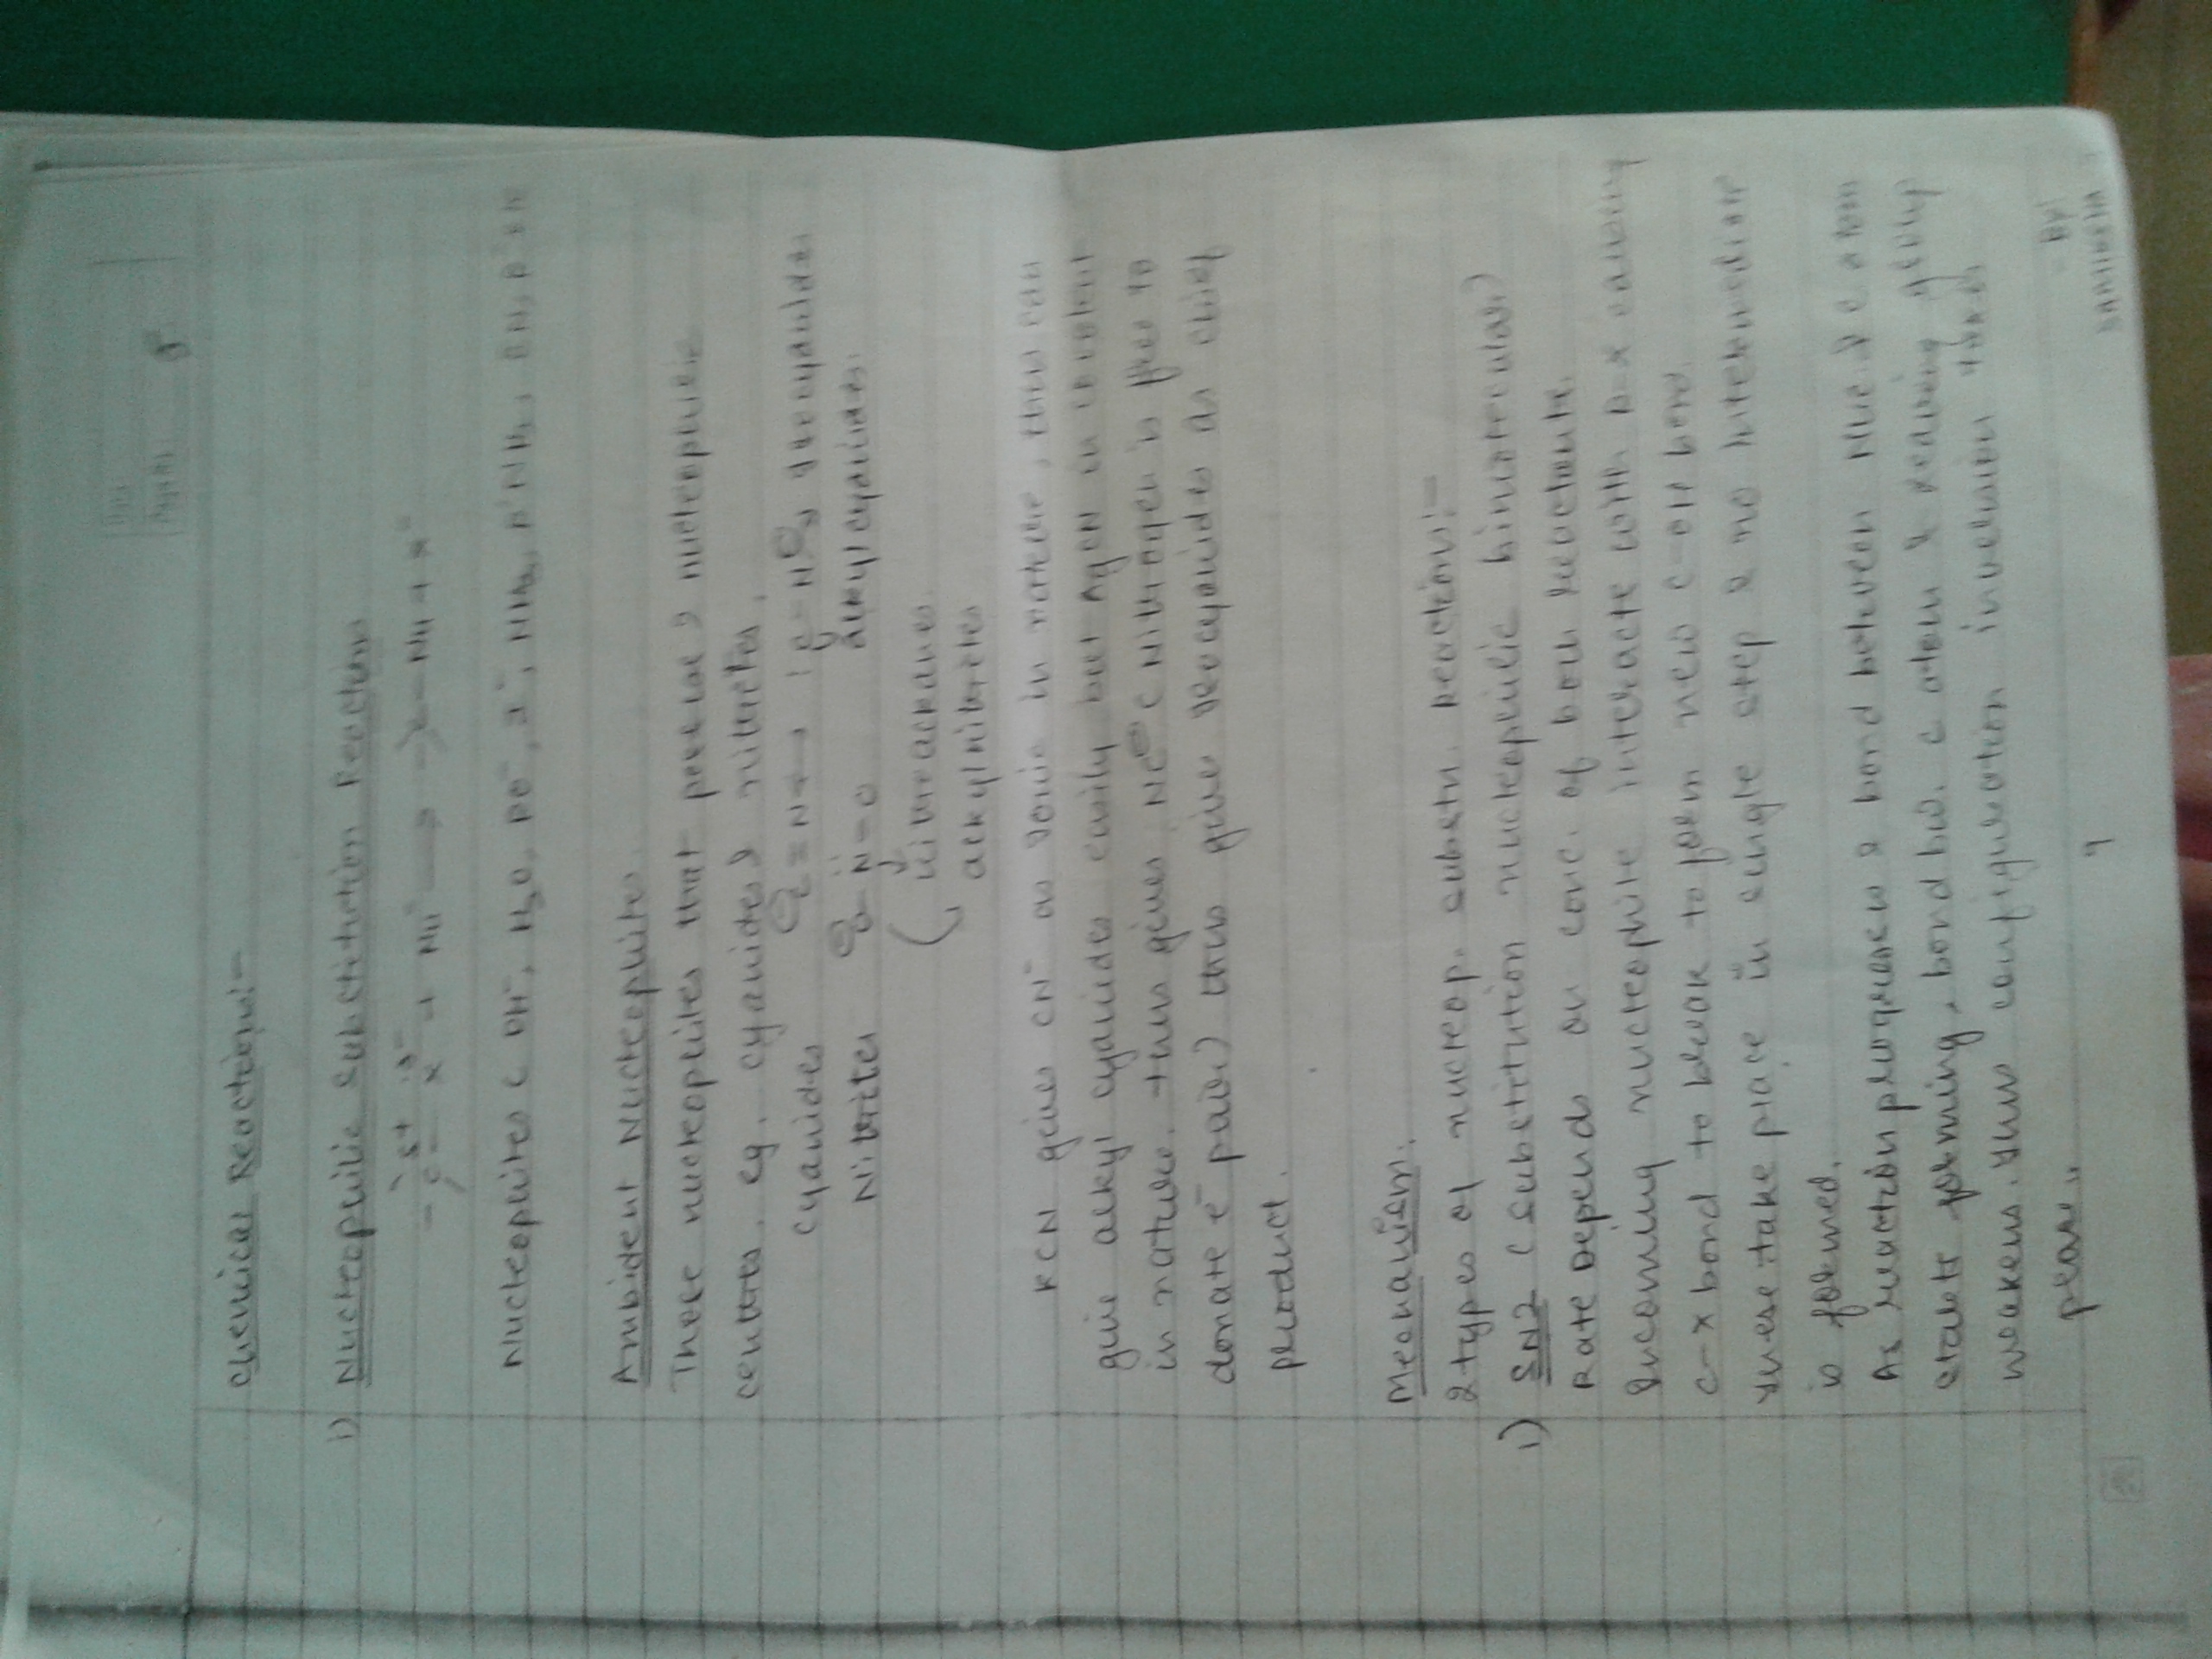 Chemical Reactions:-
1) Nucleophilic substitution Reaction
-C-X + Nu⁻ → C-Nu + X⁻
δ+ δ-
Nucleophiles ( OH⁻, H₂O, RO⁻, I⁻, NH₃, R'NH₂,
Ambident Nucleophiles.
Those nucleophiles that posses 2 nucleophilic
centres. eg. cyanides & nitrites.
cyanides ⊖C≡N ⟷ :C=N⊖ → isocyanides
alkyl cyanides.
Nitrites ⊖O-N̈=O
(nitroalkanes.
alkylnitrites
KCN gives CN⁻ as ionic in nature, thus can
give alkyl cyanides easily but AgCN is covalent
in nature. thus gives NC⊖ ( Nitrogen is free to
donate e⁻ pair) thus give isocyanides as chief
product.
Mechanism.
2 types of nucleop. substn. reactions:-
1) SN2 (substitution nucleophilic bimolecular)
Rate Depends on conc. of both reactants.
Incoming nucleophile interacts with R-X causing
C-X bond to break to form new C-OH bond.
These take place in single step & no intermediate
is formed.
As reaction progresses & bond between Nu & C atom
starts forming, bond bw. C atom & leaving group
weakens. Thus configuration inversion takes
place.
9